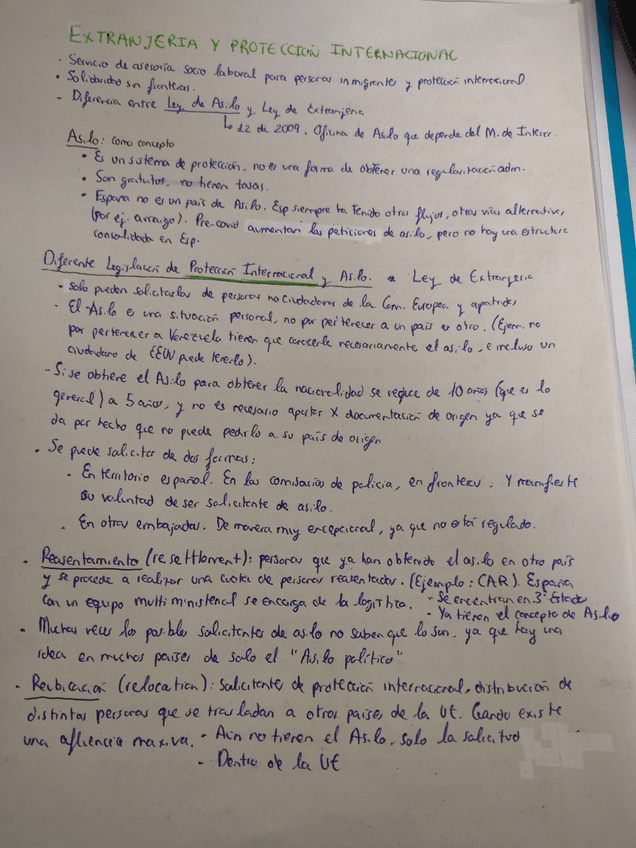 EXTRANJERIA Y PROTECCION INTERNACIONAL
- Servicio de asesoría socio laboral para personas inmigrantes y protección internacional.
• Solidaridad sin fronteras.
- Diferencia entre Ley de Asilo y Ley de Extranjería
↳ 12 de 2009. Oficina de Asilo que depende del M. de Interior.
Asilo: como concepto
• Es un sistema de protección, no es una forma de obtener una regularización adm.
• Son gratuitos, no tienen tasas.
• España no es un país de Asilo. Esp siempre ha tenido otros flujos, otras vías alternativas,
(por ej. arraigo). Pre-covid aumentan las peticiones de asilo, pero no hay una estructura
consolidada en Esp.
Diferente Legislación de Protección Internacional y Asilo. a Ley de Extranjería
- Solo pueden solicitarlas de personas no ciudadanas de la Com. Europea y apatridas
- El Asilo es una situación personal, no por pertenecer a un país u otro. (Ejem. no
por pertenecer a Venezuela tienen que concederle necesariamente el asilo, e incluso un
ciudadano de EEUU puede tenerlo).
- Si se obtiene el Asilo para obtener la nacionalidad se reduce de 10 años (que es lo
general) a 5 años, y no es necesario aportar X documentación de origen ya que se
da por hecho que no puede pedirlo a su país de origen
• Se puede solicitar de dos formas:
• En territorio español. En las comisarías de policía, en fronteras. Y manifieste
su voluntad de ser solicitante de asilo.
• En otras embajadas. De manera muy excepcional, ya que no está regulado.
• Reasentamiento (resettlement): personas que ya han obtenido el asilo en otro país
y se procede a realizar una cuota de personas reasentadas. (Ejemplo: CAR). España
con un equipo multiministerial se encarga de la logística. - Se encuentran en 3º Estado
- Ya tienen el concepto de Asilo
• Muchas veces los posibles solicitantes de asilo no saben que lo son, ya que hay una
idea en muchos países de solo el "Asilo político"
• Reubicación (relocation): solicitantes de protección internacional, distribución de
distintas personas que se trasladan a otros países de la UE. Cuando existe
una afluencia masiva. - Aún no tienen el Asilo, solo la solicitud
- Dentro de la UE